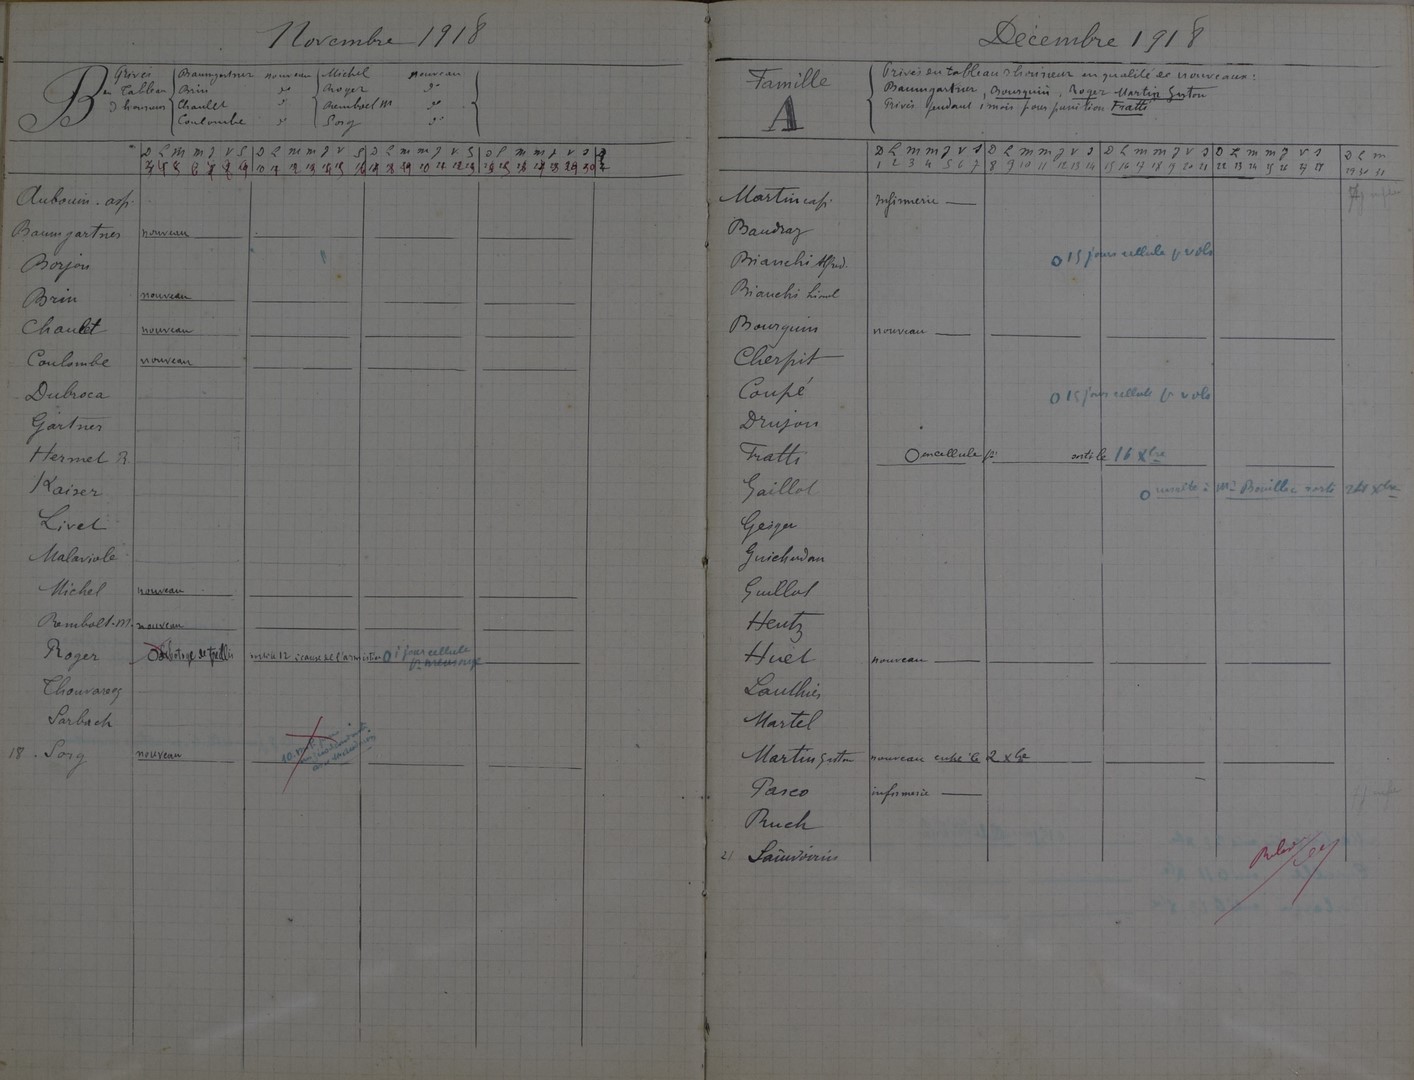 Novembre 1918
B
Privés
en tableau
d'honneur
Baumgartner nouveau
Brin do
Chaulet do
Coulombe do
Michel nouveau
Roger do
Rembolt M do
Sorg do
D L M M J V S D L M M J V S D L M M J V S D L M M J V S
Aubouin. asp.
Baumgartner nouveau
Borjon
Brin nouveau
Chaulet nouveau
Coulombe nouveau
Dubroca
Gärtner
Hermet R.
Kaiser
Livet
Malaviole
Michel nouveau
Rembolt. M. nouveau
Roger cause de l'armistice 8 jours cellule
pr mensonge
Thouvarey
Sarbach
18. Sorg nouveau
Décembre 1918
Famille
A
Privés du tableau d'honneur en qualité de nouveaux:
Baumgartner, Bourquin, Roger Martin Gaston
Privés pendant 1 mois pour punition Fratti
D L M M J V S D L M M J V S D L M M J V S D L M M J V S D L M
1 2 3 4 5 6 7 8 9 10 11 12 13 14 15 16 17 18 19 20 21 22 23 24 25 26 27 28 29 30 31
Martin cap. Infirmerie
Baudray
Bianchi Alfred. 15 jours cellule pr vols
Bianchi Lionel
Bourquin nouveau
Cherpit
Coupé 15 jours cellule pr vols
Drujon
Fratti en cellule pr sorti le 16 Xbre
Gaillot sorti 24 Xbre
Geiger
Guicherdon
Guillot
Hentz
Huet nouveau
Lauthier
Martel
Martin Gaston nouveau entré le 2 Xbre
Pasco infirmerie
Ruch
21 Sauvoirin